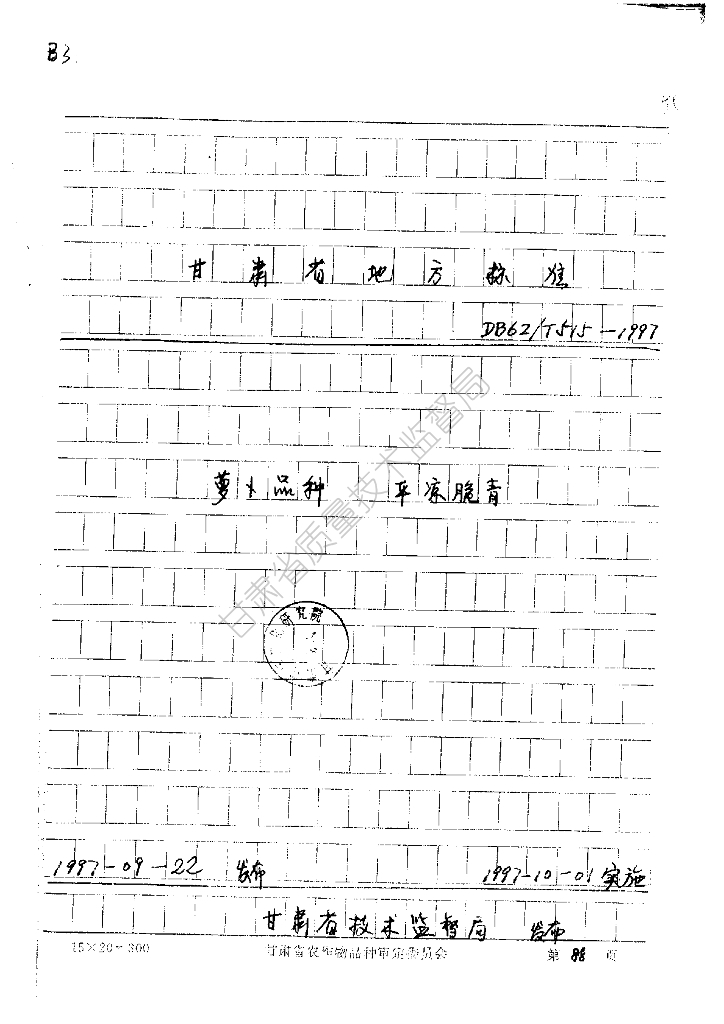 B3.
甘肃省地方标准
DB62/T515-1997
萝卜品种 平凉脆青
甘肃省质量技术监督局
研究院
1997-09-22 发布 1997-10-01 实施
甘肃省技术监督局 发布
15×20=300 甘肃省农作物品种审定委员会 第 88 页